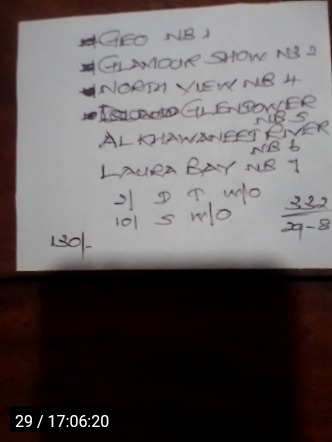 GEO NB 1
GLAMOUR SHOW NB 2
NORTH VIEW NB 4
GLENDOWER
NB 5
AL KHAWANEEJ RIVER
NB 6
LAURA BAY NB 7
2/ D T W/O
10/ S W/O
332
29-8
130/-
29 / 17:06:20